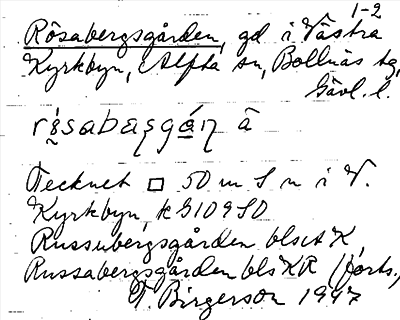 1-2
Rösabergsgården, gd i Västra
Kyrkbyn, Alfta sn, Bollnäs tg,
Gävl. l.
Tecknet □ 50 m S n i V.
Kyrkbyn, k G109 SO
Russubergsgården blstK,
Russabergsgården bls KR (forts.,
T. Birgerson 1947